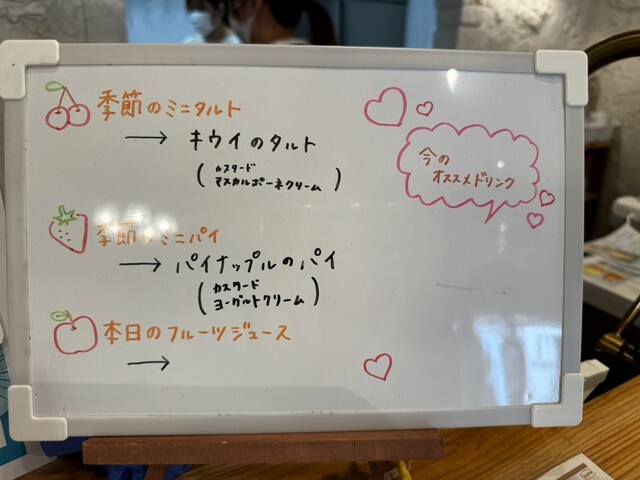 季節のミニタルト
→ キウイのタルト
(カスタード
マスカルポーネクリーム)
季節のミニパイ
→ パイナップルのパイ
(カスタード
ヨーグルトクリーム)
本日のフルーツジュース
→
今の
オススメドリンク